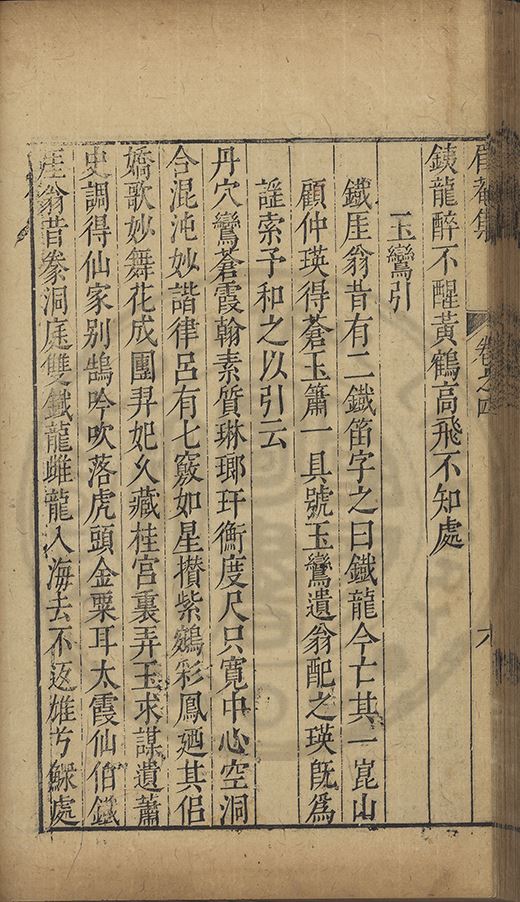 眉菴集 卷之四 六
鐵龍醉不醒黃鶴高飛不知處
玉鸞引
鐵厓翁昔有二鐵笛字之曰鐵龍今亡其一崑山
顧仲瑛得蒼玉簫一具號玉鸞遺翁配之瑛旣爲
謡索予和之以引云
丹穴鸞蒼霞翰素質琳瑯玕衡度尺只寛中心空洞
含混沌妙諧律呂有七竅如星攅紫鷀彩鳳廻其侣
嬌歌妙舞花成團羿妃久藏桂宮裏弄玉求謀遺蕭
史調得仙家别鵠吟吹落虎頭金粟耳太霞仙伯鐵
厓翁昔豢洞庭雙鐵龍雌龍入海去不返雄兮鰥處